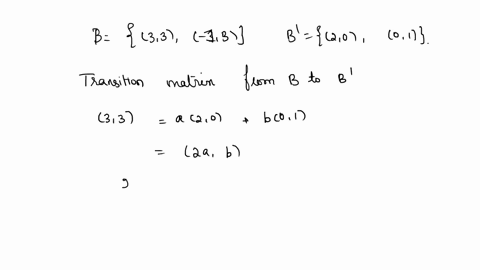 B = { (3,3), (-3,3)} B' = {(2,0), (0,1)}.
Transition matrix from B to B'
(3,3) = a(2,0) + b(0,1)
= (2a, b)